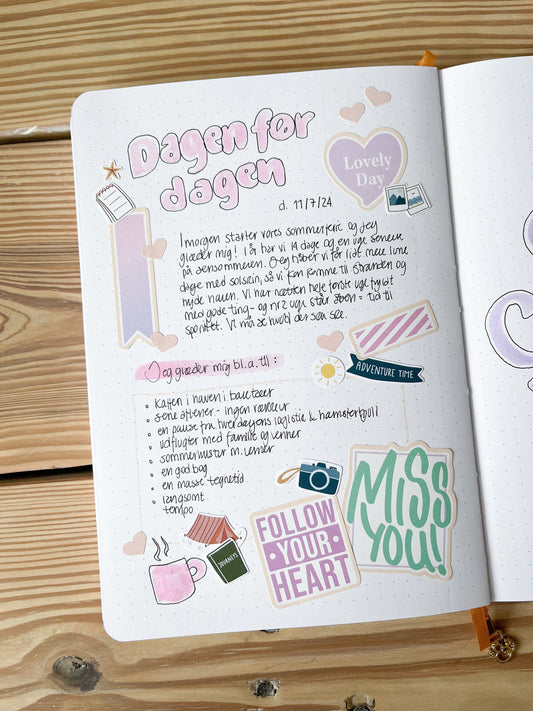 Dagen før
dagen
Lovely
Day
d. 11/7/24
I morgen starter vores sommerferie og jeg
glæder mig! I år har vi 14 dage og en uge senere
på sensommeren. Og jeg håber vi får lidt mere lune
dage med solskin, så vi kan komme til stranden og
nyde haven. Vi har næsten hele første uge fyldt
med gode ting - og nr 2 uge står åben = tid til
spontitet. Vi må se hvad der sker.
Jeg glæder mig bl.a. til:
ADVENTURE TIME
Kaffen i haven i
sene aftener - ingen vækkeur
en pause fra hverdagens logistik & hamsterhjul!
udflugter med familie og venner
sommerhustur m.
en god bog
en masse tegnetid
langsomt
tempo
MiSS
YOU!
FOLLOW
YOUR
HEART
JOURNEYS